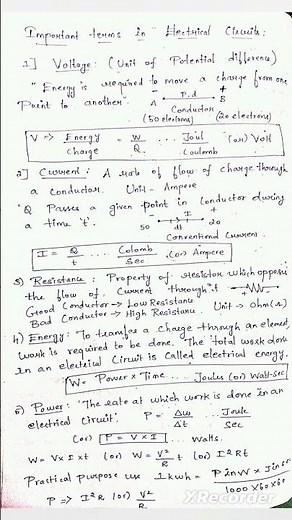 Important terms in Electrical Circuits:
1] Voltage: (Unit of Potential difference)
"Energy is required to move a charge from one
Point to another.
- P.d +
A B
Conductor
(50 electrons) (20 electrons)
V => Energy/Charge = W/Q ... Joul/Coulomb (or) Volt
2] Current: A rate of flow of charge through
a conductor. Unit - Ampere
"Q Passes a given point in conductor during
a time 't'.
- I +
50 dt 20
Conventional Current.
I = Q/t ... Colomb/Sec (or) Ampere
3) Resistance: Property of resistor which opposes
the flow of current through it
Good Conductor -> Low Resistance
Bad Conductor -> High Resistance. Unit - Ohm(Ω)
4) Energy: "To transfer a charge through an element,
work is required to be done. The total work done
in an electrical Circuit is called electrical energy.
W = Power × Time ... Joules (or) Watt-sec
5) Power: "The rate at which work is done in an
electrical Circuit". P = Δw/Δt ... Joule/Sec
(or) P = V × I ... Watts.
W = V × I × t (or) W = V²/R t (or) I²Rt
Practical purpose use 1 kwh = P in W ×
1000 × 60 × 60
P => I²R (or) V²/R
XRecorder